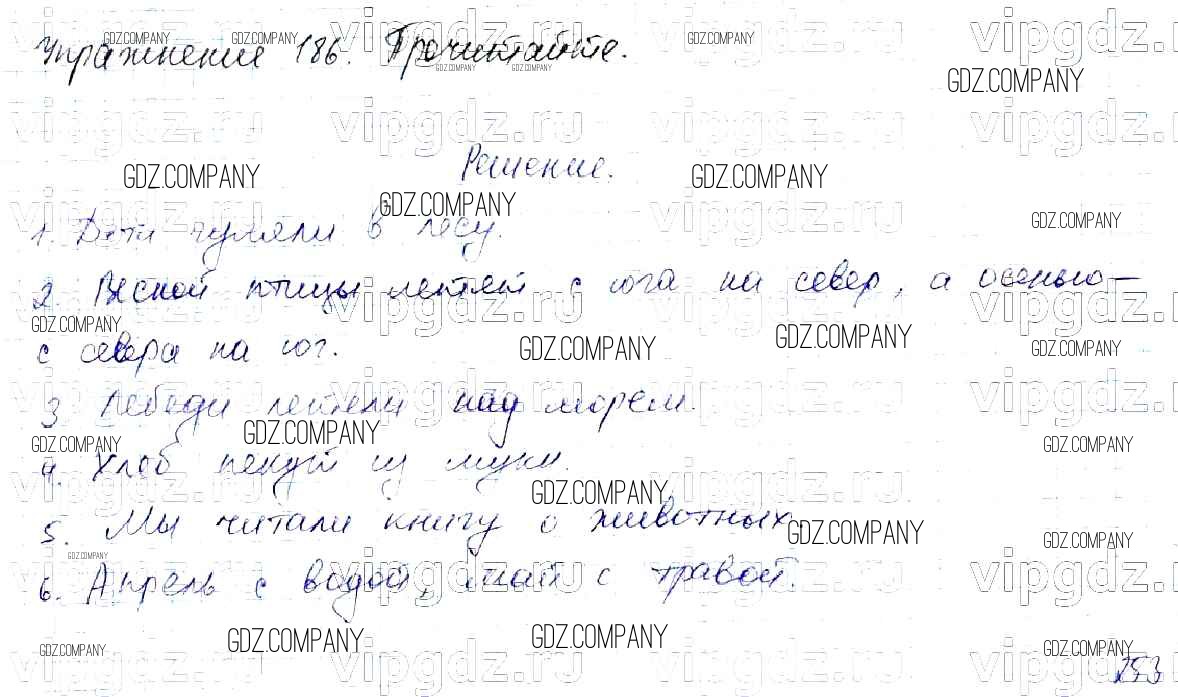 Упражнение 186. Прочитайте.
Решение.
1. Дети гуляли в лесу.
2. Весной птицы летят с юга на север, а осенью –
с севера на юг.
3. Лебеди летели над морем.
4. Хлеб пекут из муки.
5. Мы читали книгу о животных.
6. Апрель с водой, май с травой.
253
GDZ.COMPANY
vipgdz.ru